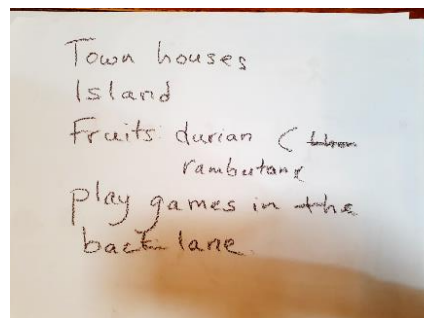 Town houses
Island
Fruits durian (
rambutans
play games in the
back lane.